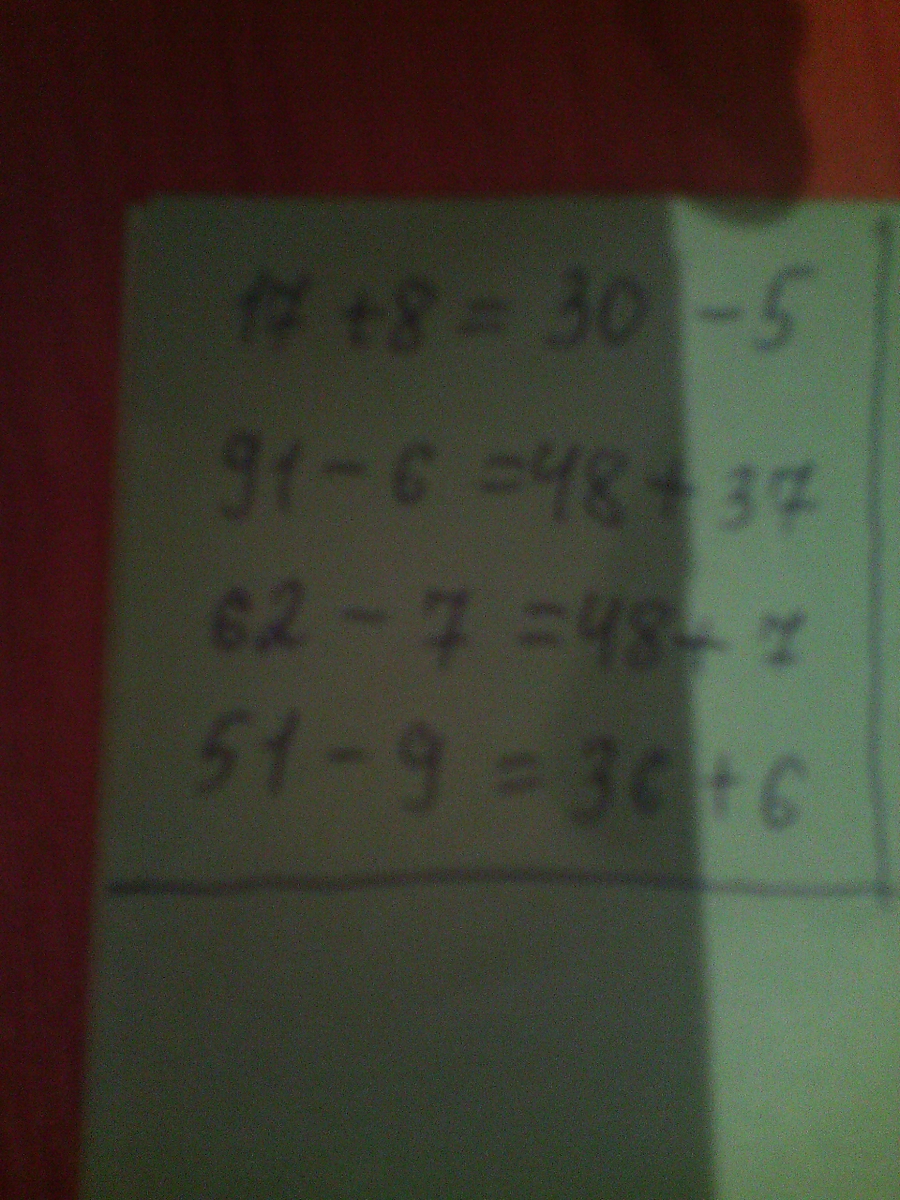 17 + 8 = 30 - 5
91 - 6 = 48 + 37
62 - 7 = 48 + 7
51 - 9 = 36 + 6